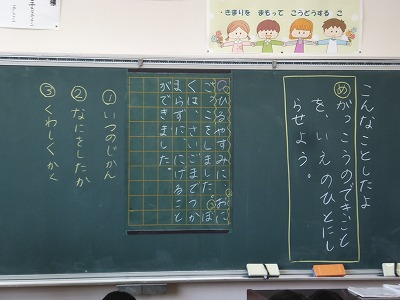 ・きまりを まもって こうどうする こ
こんなことしたよ
めがっこうのできごと
を、いえのひとにし
らせよう。
ひるやすみに、おに
ごっこをしました。ぼ
くは、さいごまでつか
まらずに にげること
ができました。
①いつのじかん
②なにをしたか
③くわしくかく